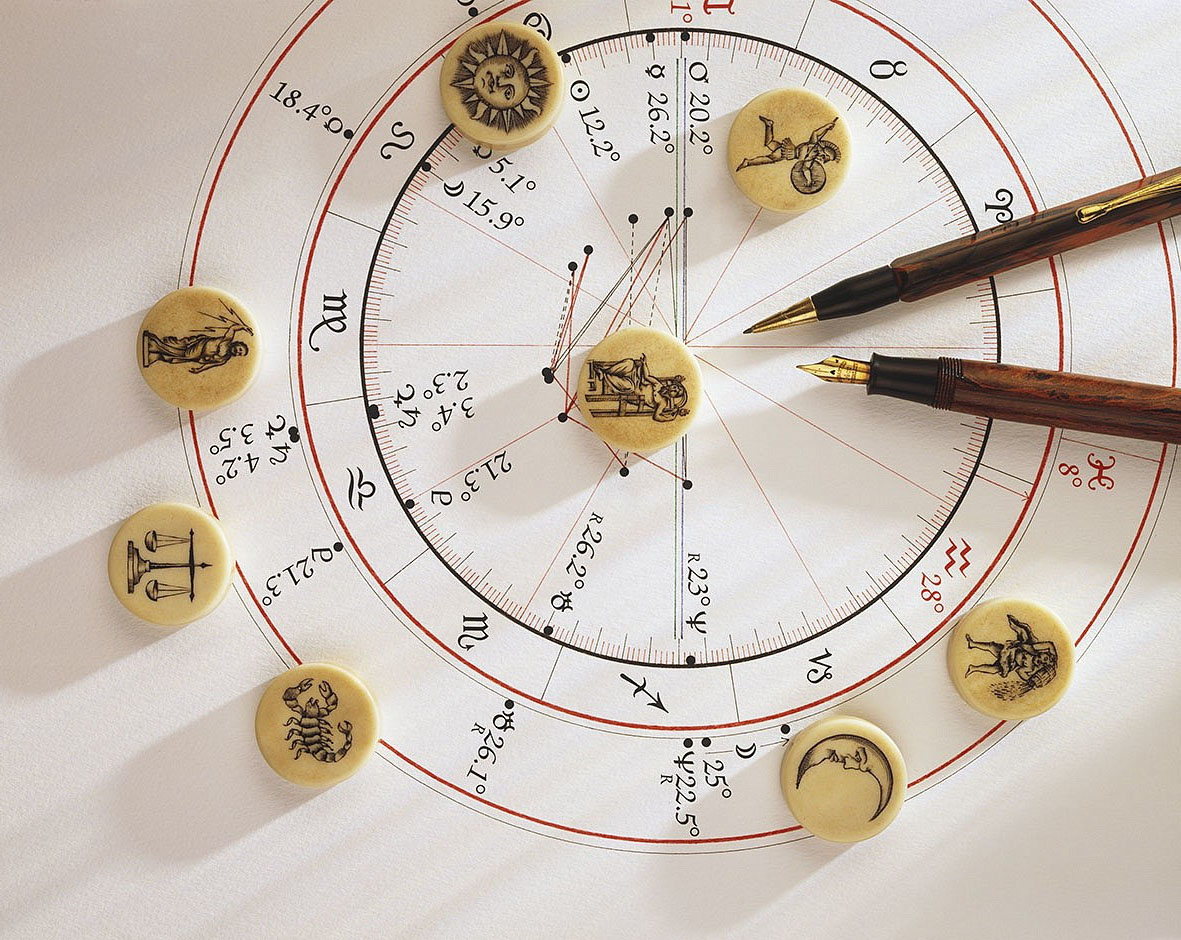 ♊
1°
♉
♈
♓
8°
♒
28°
♑
♐
♏
♎
♍
♌
♋
☉ 12.2°
☿ 26.2°
♂ 20.2°
5.1°
☽ 15.9°
18.4°
♃ ♄
2.3°
3.4°
♇ 21.3°
R 26.2° ♅
R 23° ♆
♃ ♄
3.5°
4.2°
♇ 21.3°
♅ 26.1°
R
☽
25°
♆ 22.5°
R